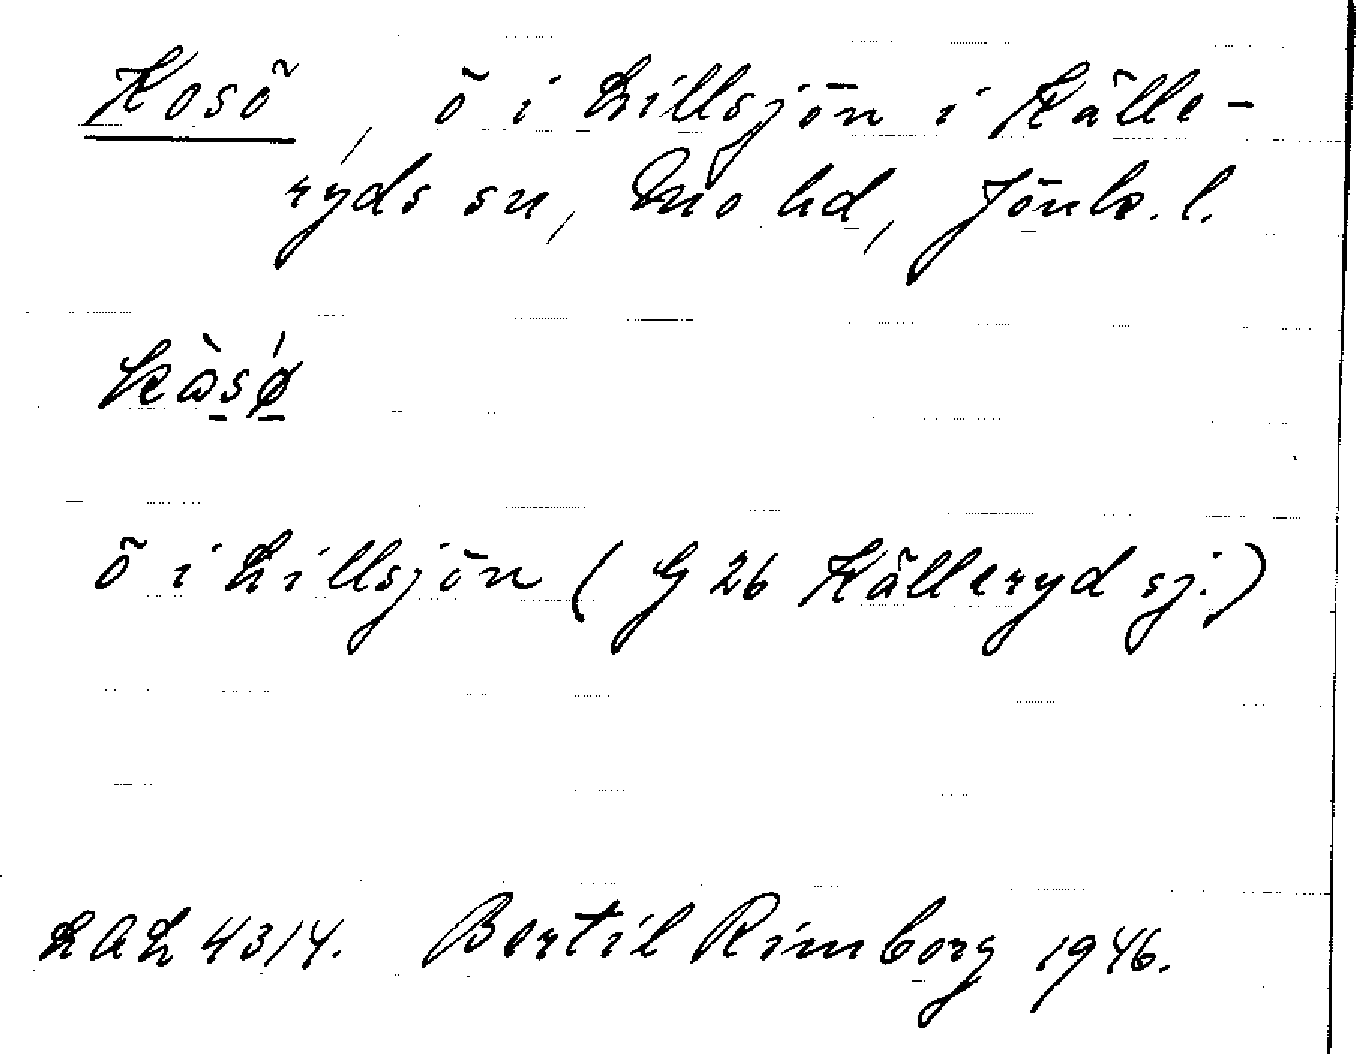 Kosö, ö i Lillsjön i Kålle-
ryds sn, Mo hd, Jönk. l.
kὼsǿ̹
ö i Lillsjön (G 26 Kålleryd sj.)
LAL 4314. Bertil Rimborg 1946.